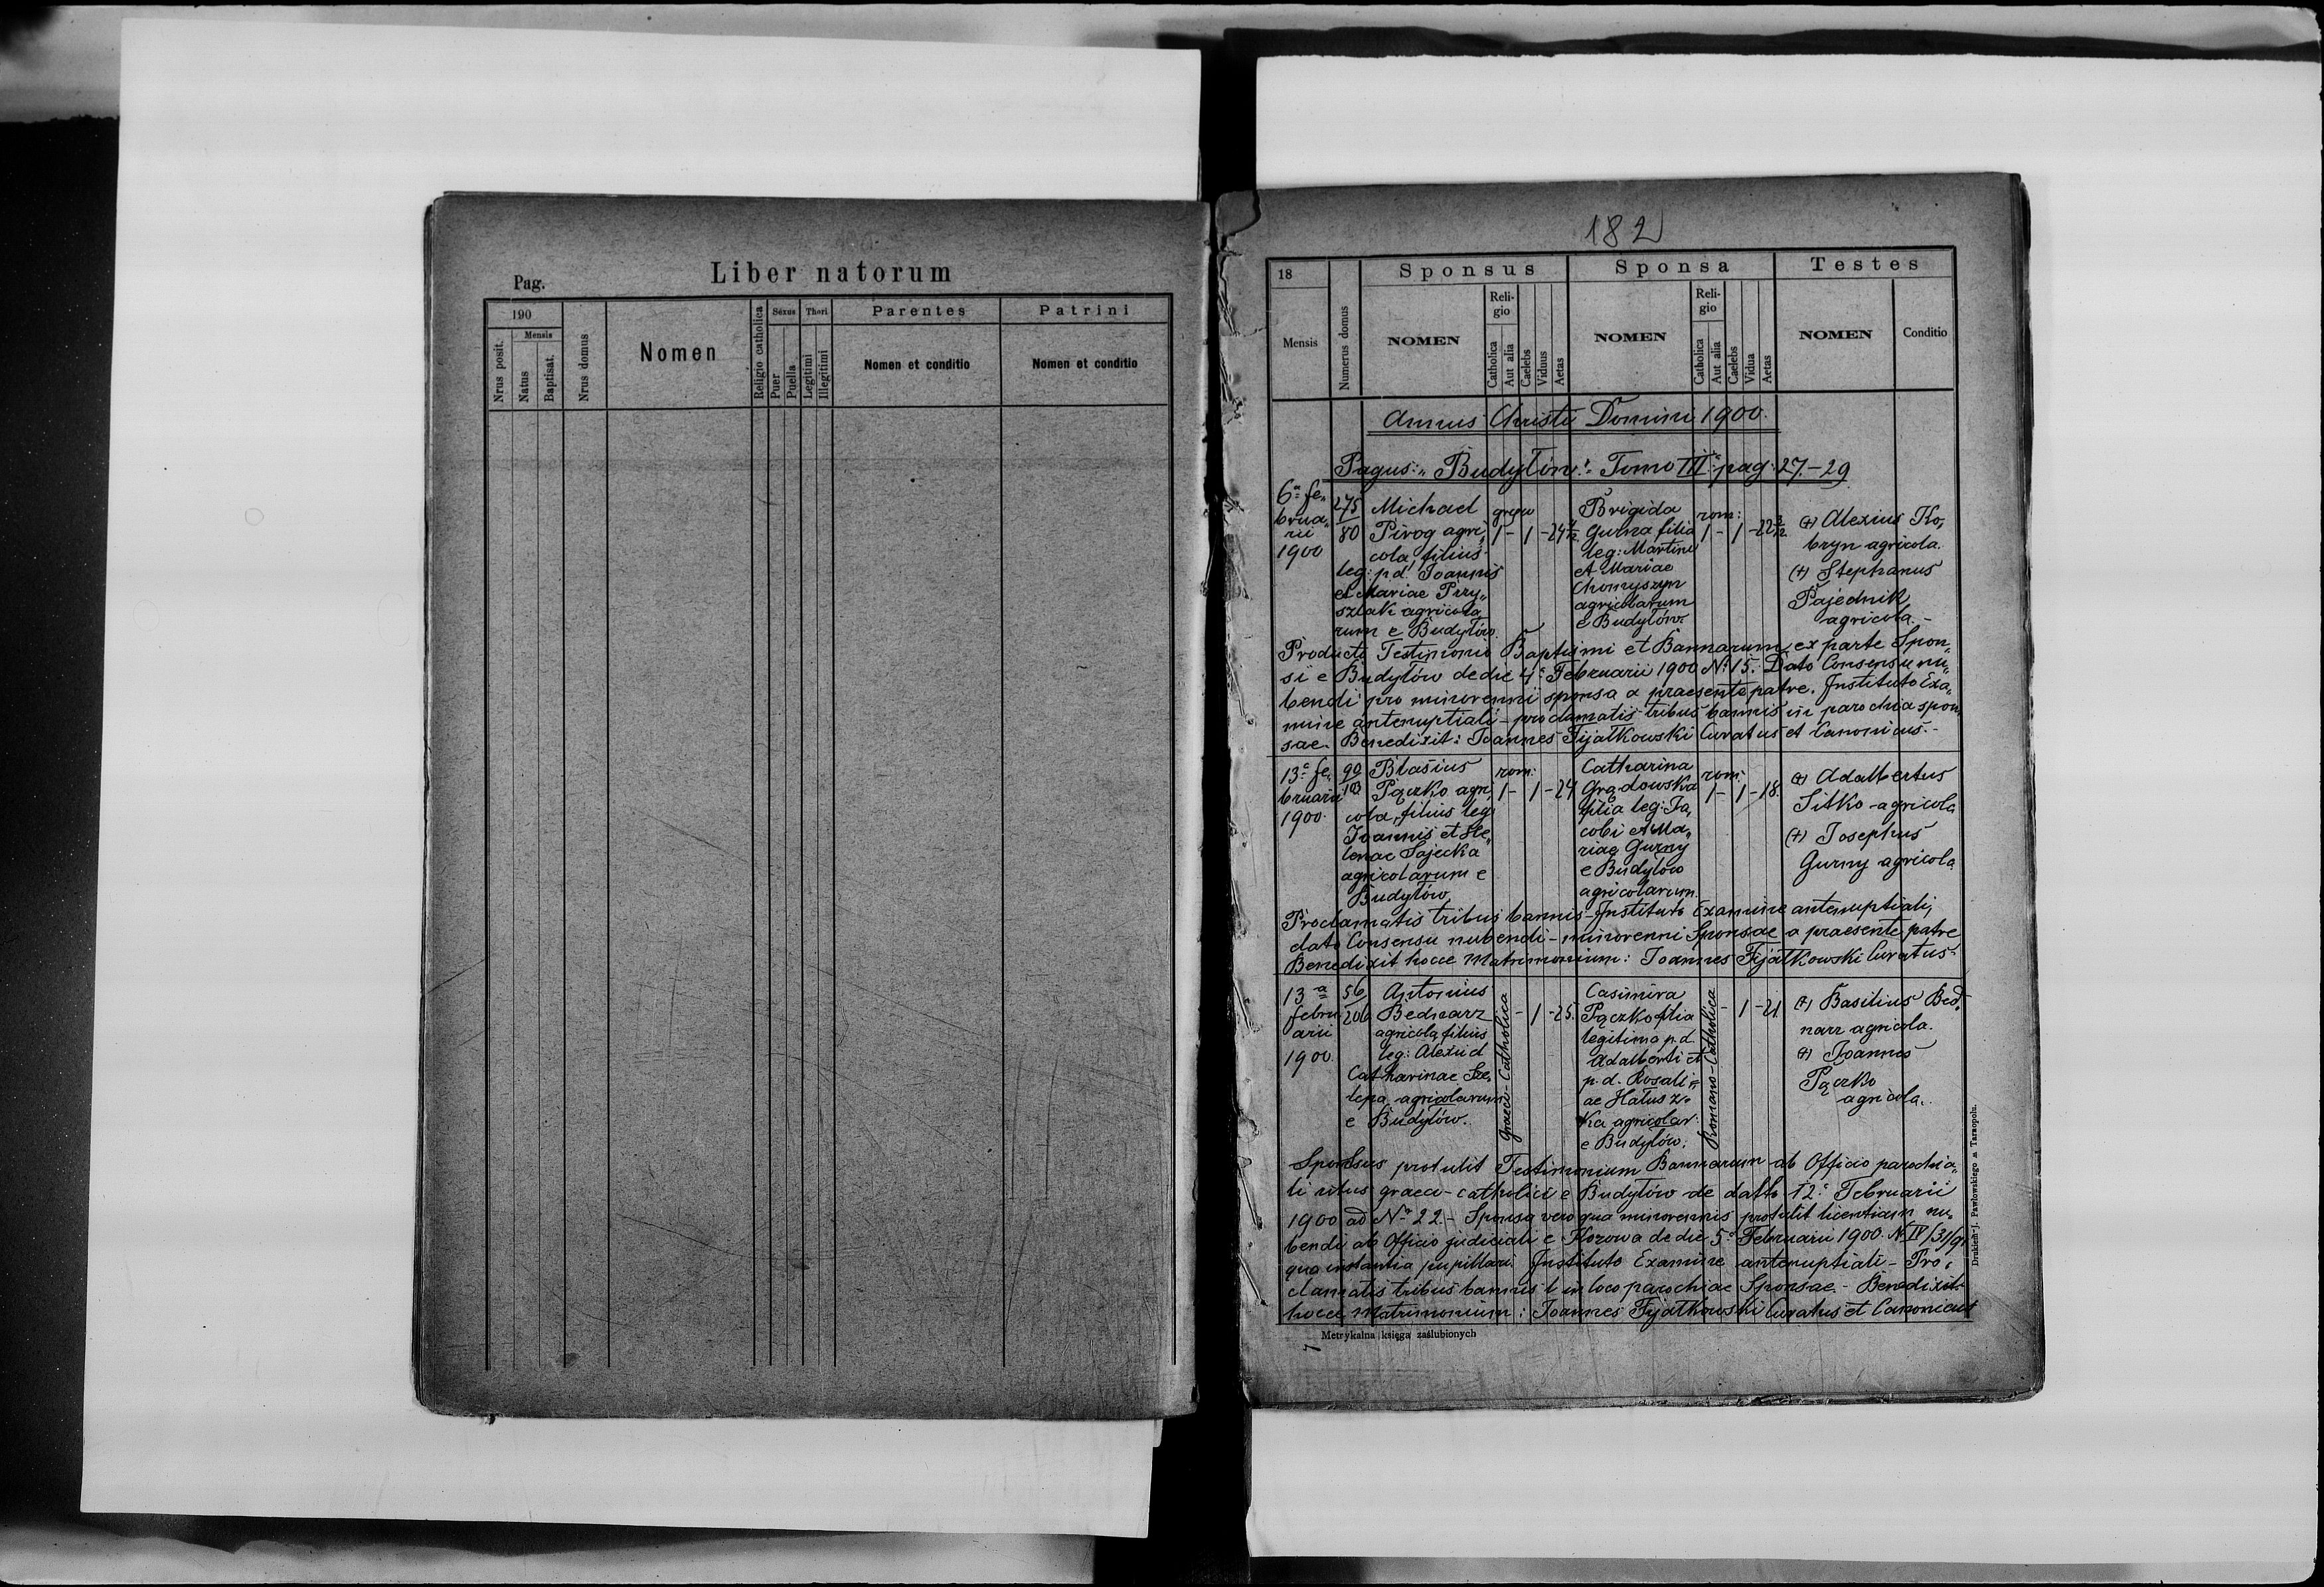 Pag.
Liber natorum
190
Nrus posit.
Mensis
Natus
Baptisat.
Nrus domus
Nomen
Religio catholica
Sexus
Puer
Puella
Thori
Legitimi
Illegitimi
Parentes
Nomen et conditio
Patrini
Nomen et conditio
182
18
Mensis
Numerus domus
Sponsus
NOMEN
Reli-
gio
Catholica
Aut alia
Caelebs
Viduus
Aetas
Sponsa
NOMEN
Reli-
gio
Catholica
Aut alia
Caelebs
Vidua
Aetas
Testes
NOMEN
Conditio
Annus Christi Domini 1900.
Pagus: „Budyłów": Tomo III: pag: 27-29
6a fe„
brua„
rii
1900
275
80
Michael
Pirog agri„
cola, filius
leg: p.d. Joannis
et Mariae Przy„
szlak agricola
rum e Budyłów.
1 - 1 - 24
Brigida
Gurna filia
leg: Martini
et Mariae
Chomyszyn
agricolarum
e Budyłów
rom:
1 - 1 - 22
(+) Alexius Ko„
bryn agricola.
(+) Stephanus
Pajednik
agricola. -
Producti Testimonio Baptismi et Bannarum ex parte Spon„
si e Budyłów de die 4: Februarii 1900 N: 15. Dato Consensu nu„
bendi pro minorenni sponsa a praesente patre. Instituto Exa„
mine antenuptiali - proclamatis tribus bannis in parochia spon
sae. Benedixit: Joannes Fijałkowski Curatus et Canonicus. -
13a fe„
bruarii
1900.
90
Blasius
Pączko agri„
cola, filius leg
Joannis et He„
lenae Sajecka
agricolarum e
Budyłów
rom:
1 - 1 - 24
Catharina
Grądowska
filia leg: Ja„
cobi et Ma„
riae Gurny
e Budyłów
agricolarum.
rom:
1 - 1 - 18.
(+) Adalbertus
Sitko - agricola
(+) Josephus
Gurny agricola
Proclamatis tribus bannis - Instituto Examine antenuptiali,
dato Consensu nubendi - minorenni Sponsae a praesente patre
Benedixit hocce Matrimonium: Joannes Fijałkowski Curatus -
13a
febru
arii
1900.
56
206
Antonius
Bednarz
agricola, filius
leg: Alexii et
Catharinae Sze„
lepa agricolarum
e Budyłów.
Graeco-Catholica
- 1 - 25.
Casimira
Pączko filia
legitima p.d.
Adalberti et
p.d. Rosali=
ae Hałusz„
ka agricolar:
e Budyłów.
Romano-Catholica
- 1 - 21
(+) Basilius Bed„
narz agricola.
(+) Joannes
Pączko
agricola.
Sponsus protulit Testimonium Bannarum ab Officio parochia„
li ritus graeco-catholici e Budyłów de datto 12: Februarii
1900 ad No 22. - Sponsa vero qua minorennis protulit licentiam nu„
bendi ab Officio judiciali e Kozowa de die 5: Februarii 1900. N IV/31/9
qua instantia pupillari. Instituto Examine antenuptiali - Pro„
clamatis tribus bannis in loco parochiae Sponsae - Benedixit
hocce Matrimonium: Joannes Fijałkowski Curatus et Canonicus
Metrykalna księga zaślubionych
7
Drukiem J. Pawłowskiego w Tarnopolu.